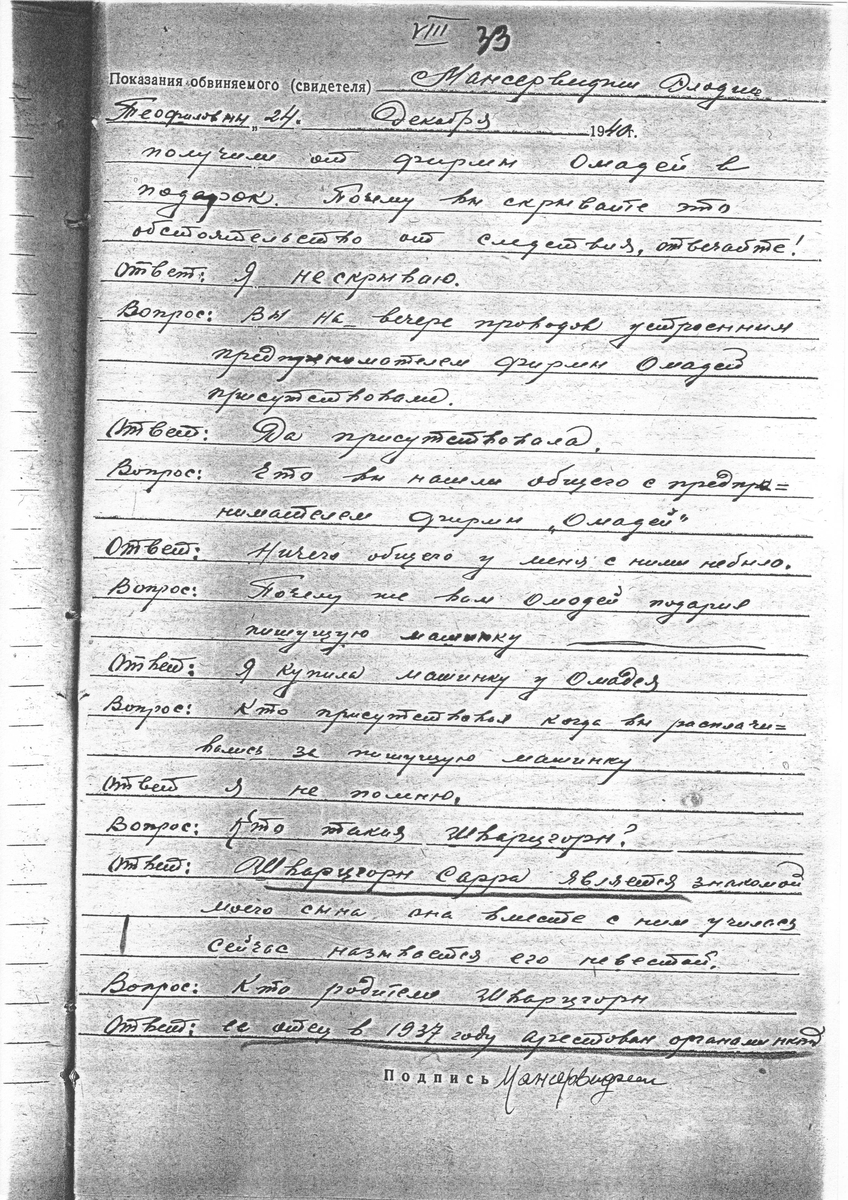 VIII 33
Показания обвиняемого (свидетеля) Мансервиджи Элодии
Теофиловны „24. Декабря 1940г.
получили от фирмы Омадей в
подарок. Почему вы скрываите это
обстоятельство от следствия, отвечайте!
Ответ: Я не скрываю.
Вопрос: Вы на вечере проводов устроенним
предпренимателем фирмы Омадей
присутствовали.
Ответ: Да присутствовала.
Вопрос: Что вы нашли общего с предпри=
нимателем фирмы „Омадей"
Ответ: Ничего общего у меня с ними небыло.
Вопрос: Почему же вам Омадей подарил
пишущую машинку
Ответ: Я купила машинку у Омадея
Вопрос: Кто присутствовал когда вы расплачи=
вались за пишущую машинку
Ответ Я не помню.
Вопрос: Кто такия Шварцгорн?
Ответ: Шварцгорн Сарра является знакомой
моего сына она вместе с ним училась
сейчас называется его невестой.
Вопрос: Кто родители Шварцгорн
Ответ: ее отец в 1937 году арестован органами НКВД
Подпись Мансервиджи